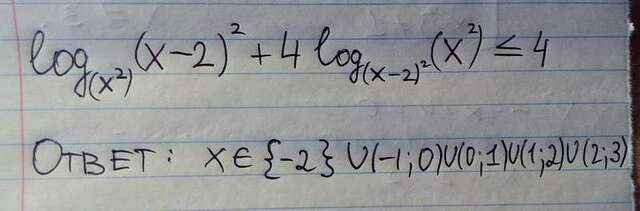 log_(x²)(x-2)² + 4 log_(x-2)²(x²) ≤ 4
ОТВЕТ: x ∈ {-2} ∪ (-1; 0) ∪ (0; 1) ∪ (1; 2) ∪ (2; 3)